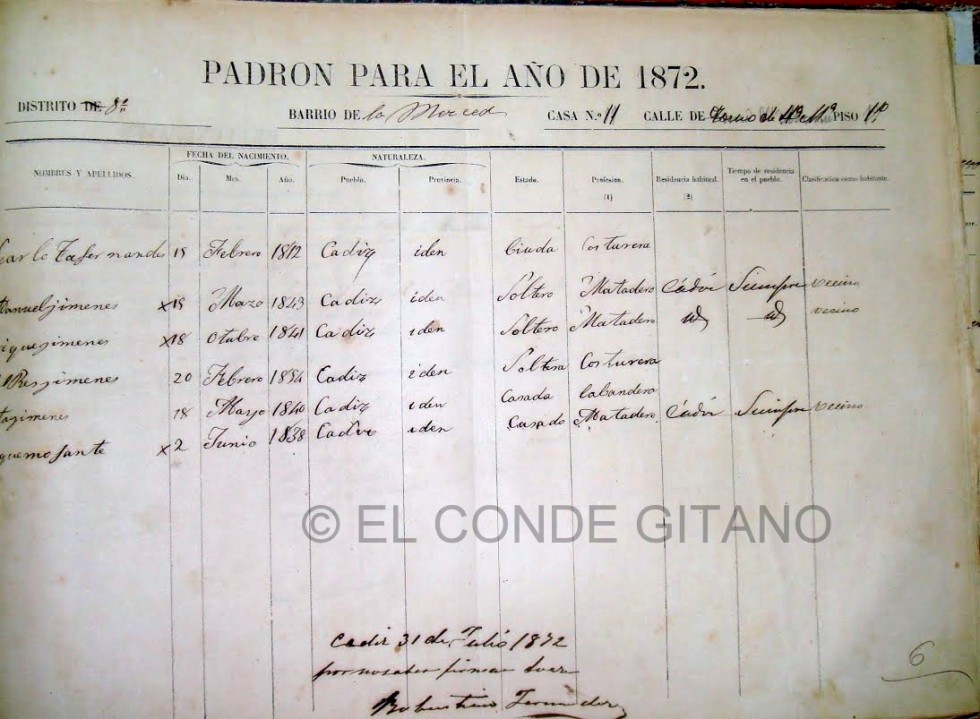 PADRON PARA EL AÑO DE 1872.
DISTRITO DE 8º
BARRIO DE la Merced CASA N.º 11 CALLE DE PISO 1º
NOMBRES Y APELLIDOS. FECHA DEL NACIMIENTO. NATURALEZA. Estado. Profesion. Residencia habitual. Tiempo de residencia en el pueblo. Clasificacion como habitante.
Dia. Mes. Año. Pueblo. Provincia. (1) (2)
15 Febrero 1812 Cadiz iden Biuda Costurera
Manuel jimenes x19 Marzo 1843 Cadiz iden Soltero Matadero Cádiz Siempre vecino
jimenes x18 Otubre 1841 Cadiz iden Soltero Matadero id id vecino
Reyjimenes 20 Febrero 1854 Cadiz iden Soltera Costurera
jimenes 18 Mayo 1840 Cadiz iden Casada labandera
x2 Junio 1838 Cadiz iden Casado Matadero Cádiz Siempre vecino
© EL CONDE GITANO
Cadiz 31 de Julio 1872
por no saber firmar
6